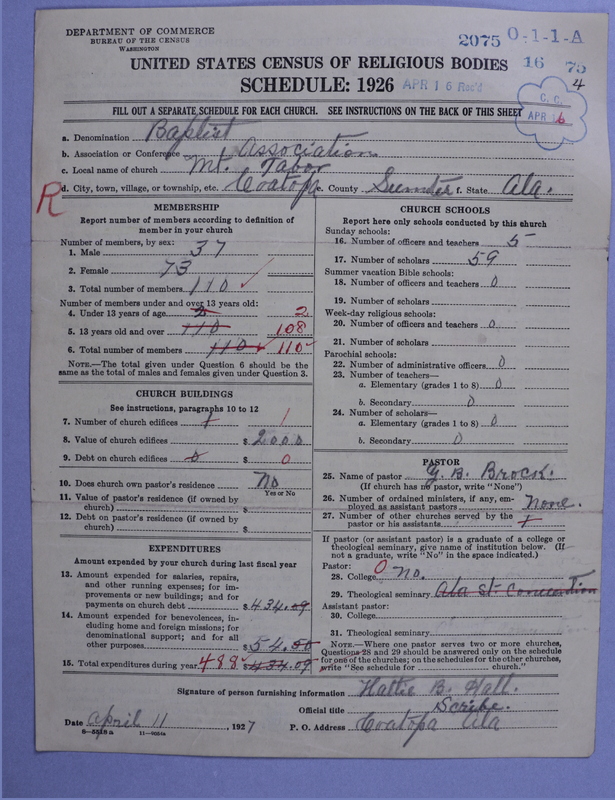 DEPARTMENT OF COMMERCE
BUREAU OF THE CENSUS
WASHINGTON
2075 0-1-1-A
UNITED STATES CENSUS OF RELIGIOUS BODIES
16 75
4
SCHEDULE: 1926
APR 16 Rec'd
C. C.
APR 16
FILL OUT A SEPARATE SCHEDULE FOR EACH CHURCH. SEE INSTRUCTIONS ON THE BACK OF THIS SHEET
a. Denomination Baptist
b. Association or Conference Association
c. Local name of church Mt. Tabor
R
d. City, town, village, or township, etc. Coatopa e. County Sumter f. State Ala.
MEMBERSHIP
Report number of members according to definition of
member in your church
Number of members, by sex:
1. Male 37
2. Female 73
3. Total number of members 110
Number of members under and over 13 years old:
4. Under 13 years of age 2 2
5. 13 years old and over 110 108
6. Total number of members 110 110
NOTE.—The total given under Question 6 should be the
same as the total of males and females given under Question 3.
CHURCH BUILDINGS
See instructions, paragraphs 10 to 12
7. Number of church edifices 1 1
8. Value of church edifices $2000
9. Debt on church edifices 0 $ 0
10. Does church own pastor's residence No
Yes or No
11. Value of pastor's residence (if owned by
church) $
12. Debt on pastor's residence (if owned by
church) $
EXPENDITURES
Amount expended by your church during last fiscal year
13. Amount expended for salaries, repairs,
and other running expenses; for im-
provements or new buildings; and for
payments on church debt $434.09
14. Amount expended for benevolences, in-
cluding home and foreign missions; for
denominational support; and for all
other purposes $54.00
15. Total expenditures during year 488 $434.09
CHURCH SCHOOLS
Report here only schools conducted by this church
Sunday schools:
16. Number of officers and teachers 5
17. Number of scholars 59
Summer vacation Bible schools:
18. Number of officers and teachers 0
19. Number of scholars
Week-day religious schools:
20. Number of officers and teachers 0
21. Number of scholars
Parochial schools:
22. Number of administrative officers 0
23. Number of teachers—
a. Elementary (grades 1 to 8) 0
b. Secondary 0
24. Number of scholars—
a. Elementary (grades 1 to 8) 0
b. Secondary 0
PASTOR
25. Name of pastor G. B. Brock.
(If church has no pastor, write "None")
26. Number of ordained ministers, if any, em-
ployed as assistant pastors None.
27. Number of other churches served by the
pastor or his assistants 1
If pastor (or assistant pastor) is a graduate of a college or
theological seminary, give name of institution below. (If
not a graduate, write "No" in the space indicated.)
Pastor:
28. College 0 No.
29. Theological seminary Ala st convention
Assistant pastor:
30. College
31. Theological seminary
NOTE.—Where one pastor serves two or more churches,
Questions 28 and 29 should be answered only on the schedule
for one of the churches; on the schedules for the other churches,
write "See schedule for church."
Signature of person furnishing information Hattie B. Hall.
Official title Scribe.
Date April 11, 1927 P. O. Address Coatopa Ala